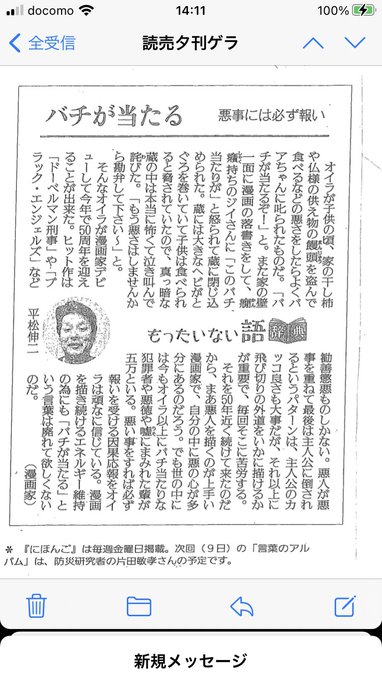 docomo 14:11 100%
全受信 読売夕刊ゲラ
バチが当たる 悪事には必ず報い
オイラが子供の頃、家の干し柿
や仏様の供え物の饅頭を盗んで
食べるなどの悪さをしたらよくバ
アちゃんに叱られたものだ。「バ
チが当たるぞー!」と。また家の壁
一面に漫画の落書きをして、癇
癪持ちのジイさんに「このバチ
当たりが」と怒られて蔵に閉じ込
められた。蔵には大きなヘビがと
ぐろを巻いていて子供は食べられ
ると脅されていたので、真っ暗な
蔵の中は本当に怖くて泣き叫んで
詫びた。「もう悪さはしませんか
ら勘弁して下さい〜」と。
そんなオイラが漫画家デビ
ューして今年で50周年を迎え
ることが出来た。ヒット作は
「ドーベルマン刑事」や「ブ
ラック・エンジェルズ」など
もったいない語辞典
平松伸二
勧善懲悪ものしかない。悪人が悪
事を重ねて最後は主人公に倒され
るというパターンは、主人公のカ
ッコ良さも大事だが、それ以上に
飛び切りの外道をいかに描けるか
が重要で、毎回そこに苦労する。
それを50年近く続けて来たのだ
から、まあ悪人を描くのが上手い
漫画家で、自分の中に悪の心が多
分にあるのだろう。でも世の中に
は今もオイラ以上にバチ当たりな
犯罪者や悪徳や嘘にまみれた輩が
五万といる。悪い事をすれば必ず
報いを受ける因果応報をオイ
ラは頑なに信じている。漫画
を描き続けるエネルギー維持
の為にも「バチが当たる」と
いう言葉は廃れて欲しくない
のだ。 (漫画家)
*『にほんご』は毎週金曜日掲載。次回(9日)の「言葉のアル
バム」は、防災研究者の片田敏孝さんの予定です。
新規メッセージ